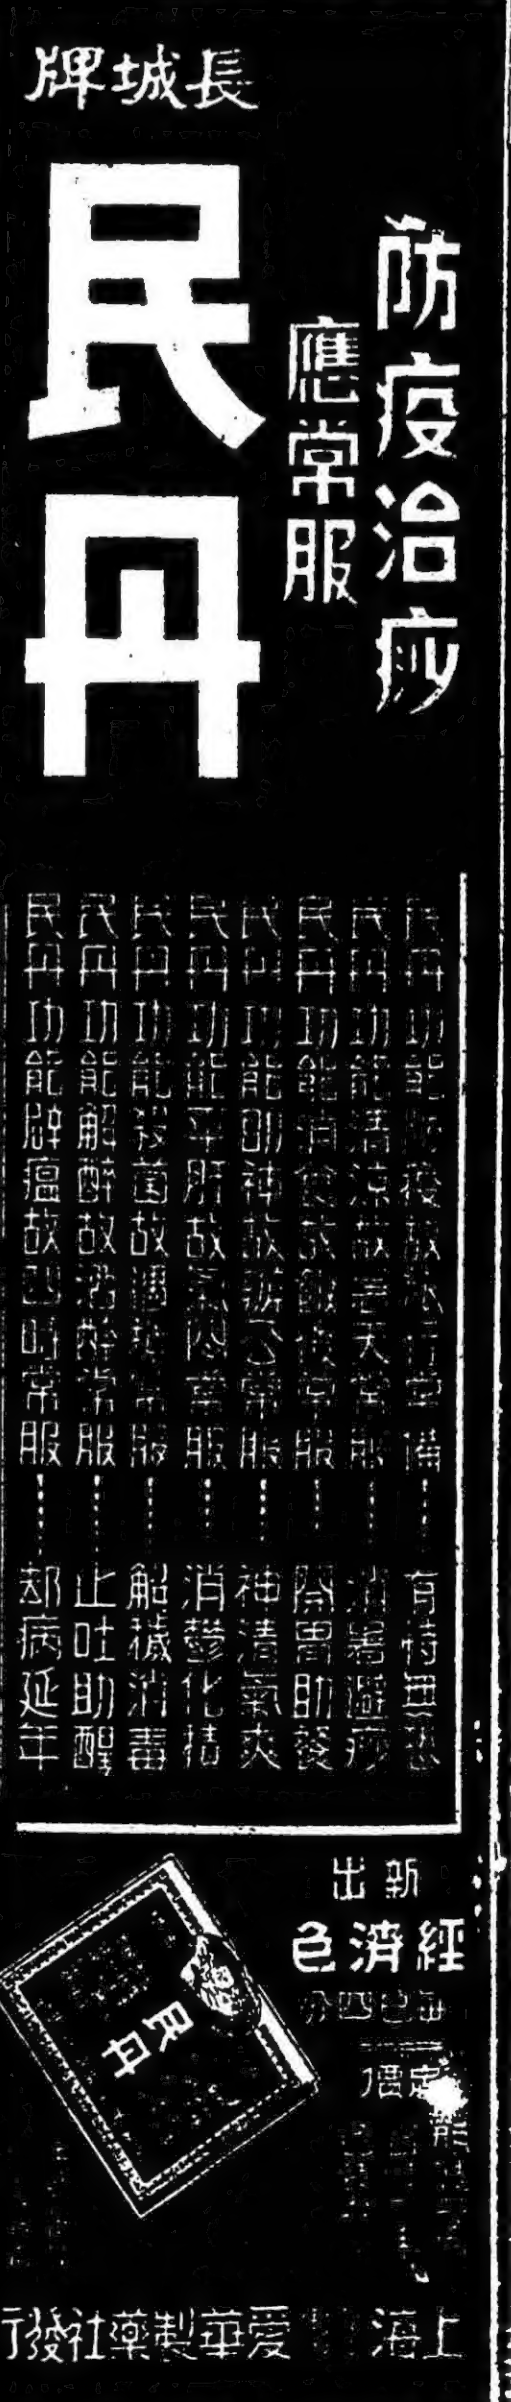 長城牌
防疫治痧
應常服
民丹
民丹功能防疫故旅行常備……有恃無恐
民丹功能清涼故暑天常服……消暑避痧
民丹功能消食故飯後常服……開胃助餐
民丹功能助神故辦公常服……神清氣爽
民丹功能平肝故氣悶常服……消鬱化結
民丹功能殺菌故遇穢常服……解穢消毒
民丹功能解醉故酒醉常服……止吐助醒
民丹功能辟瘟故四時常服……却病延年
新出
經濟包
每包四分
民丹
上海 愛華製藥社發行